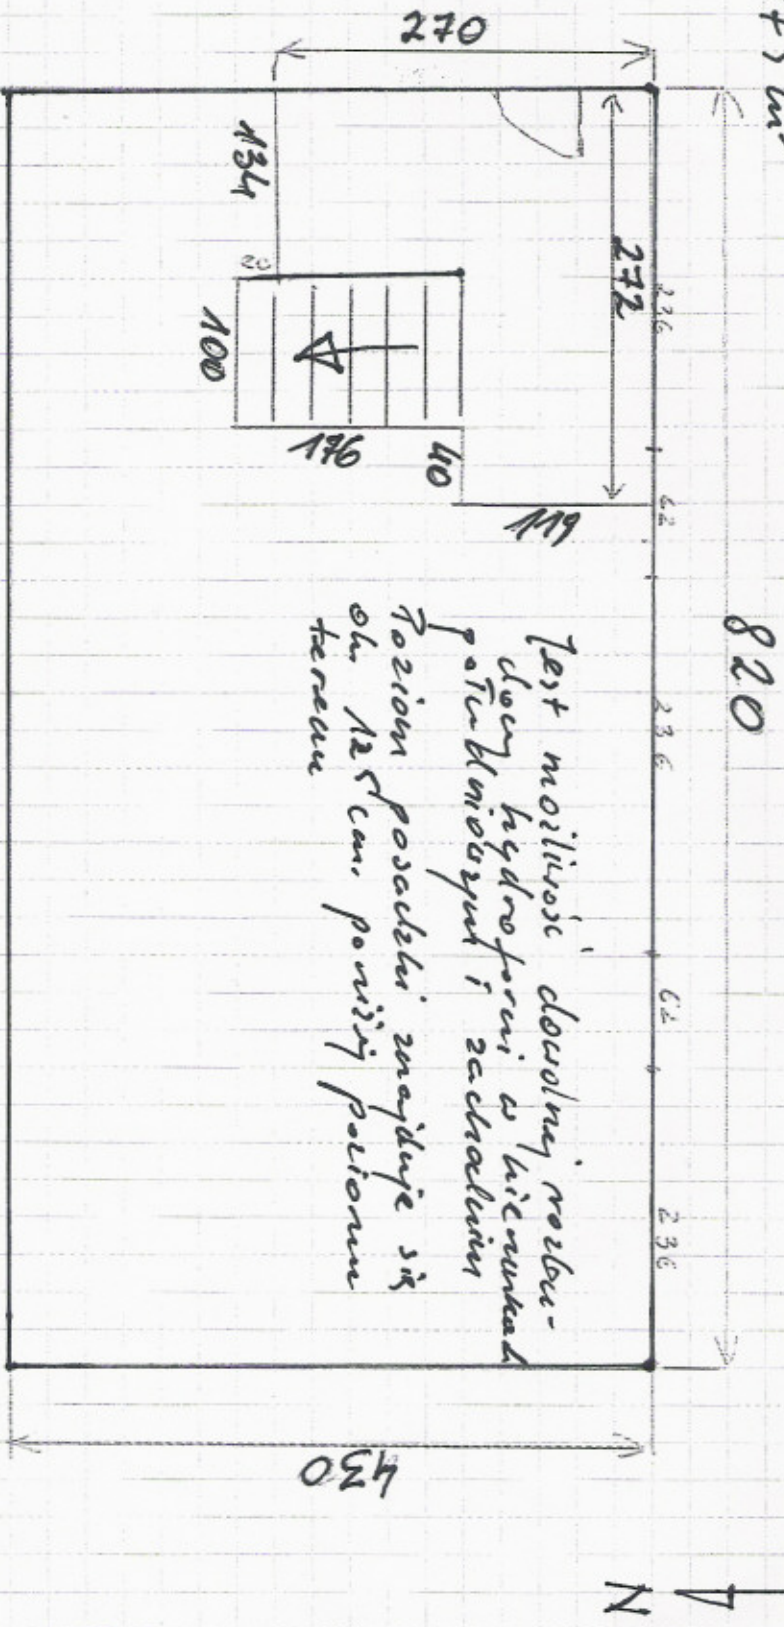 820
236
62
236
62
236
270
272
119
40
134
20
100
176
Jest możliwość dowolnej rozbu-
dowy hydroforni w kierunkach
południowym i zachodnim
Poziom posadzki znajduje się
ok. 125 cm. poniżej poziomu
terenu
430
N